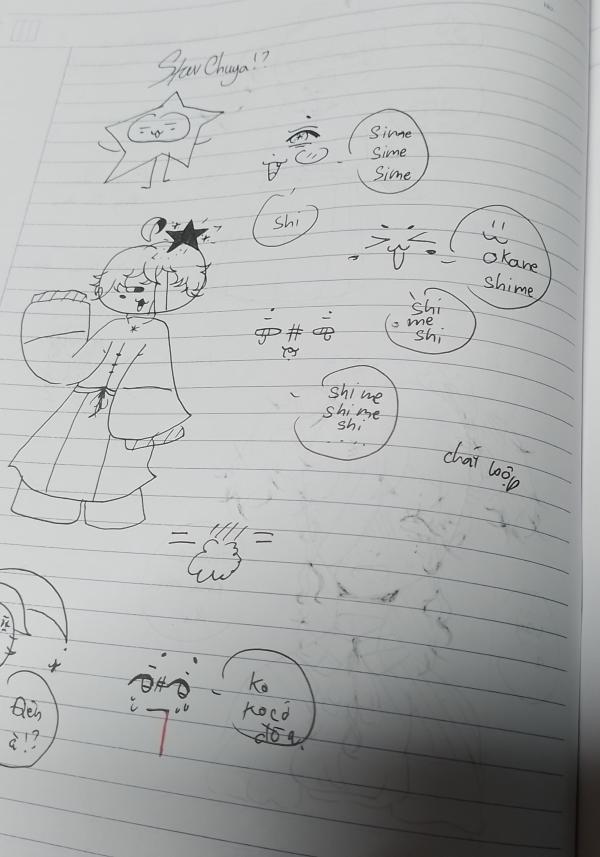 Star Chuya!?
Sime
Sime
Sime
Shi
okane
shime
shi
me
shi
shime
shime
shi
....
Điên
à!?
Ko
Ko có